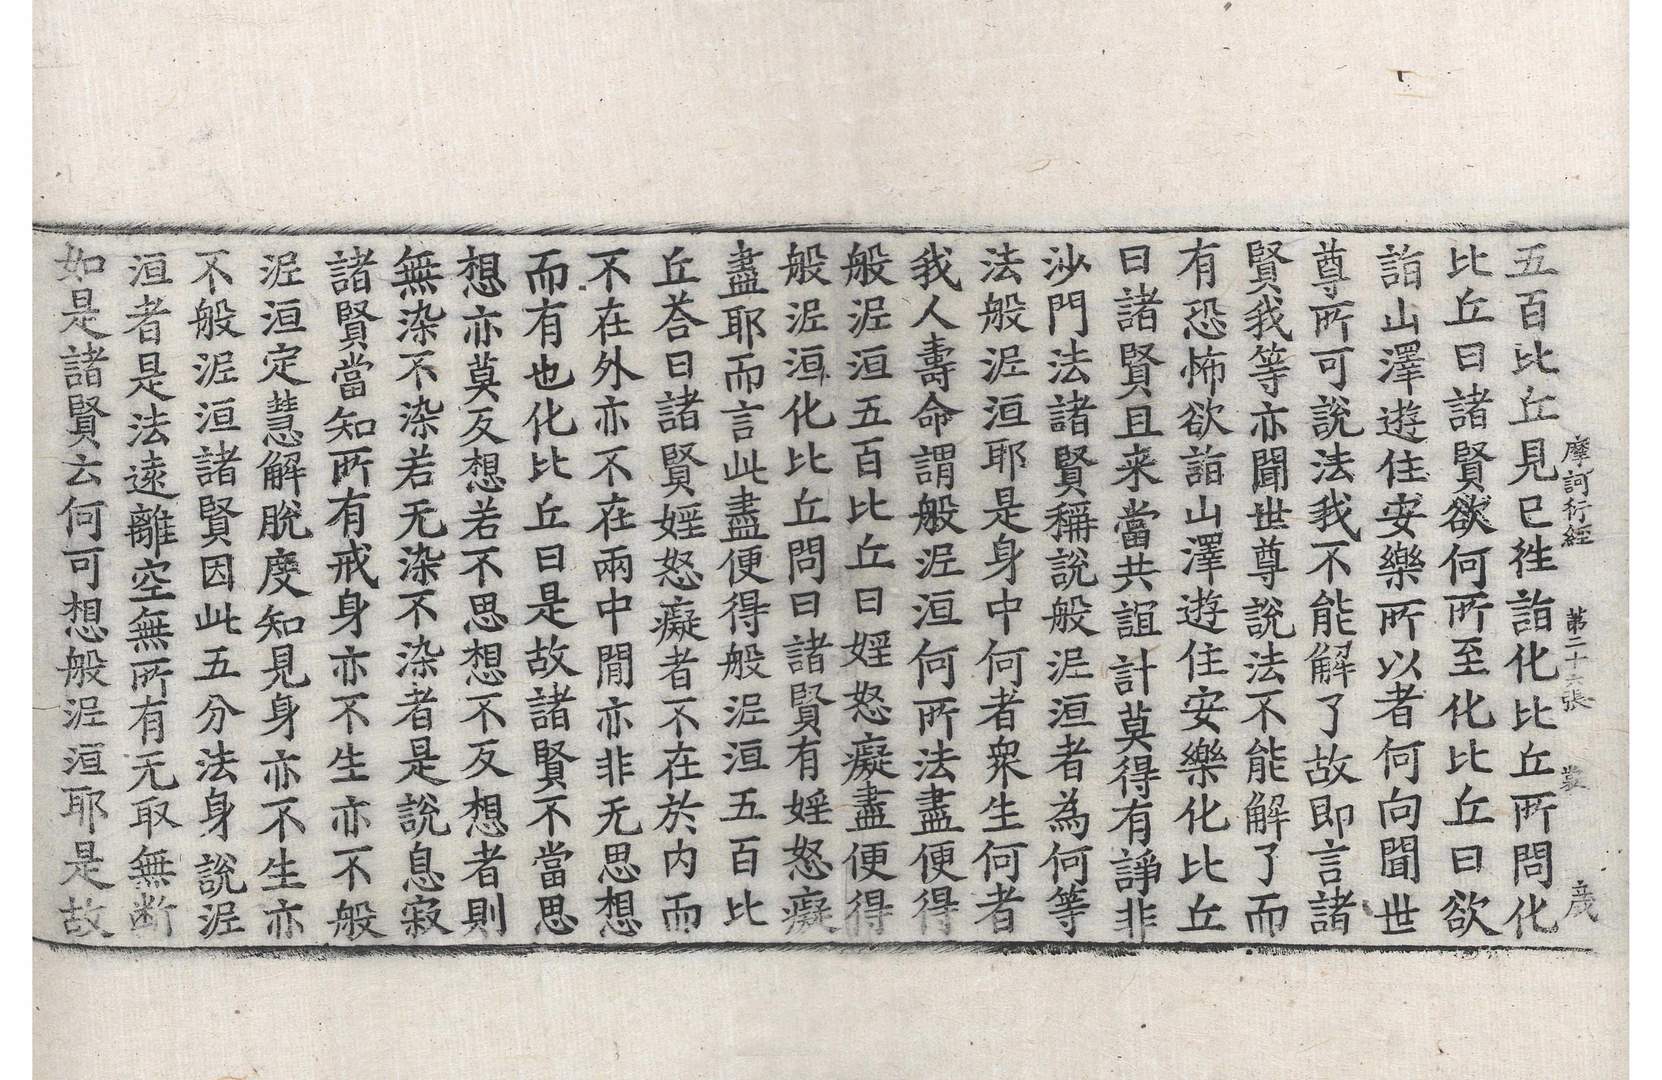 摩訶衍經　第二十六張　裳
五百比丘見已往詣化比丘所問化
比丘曰諸賢欲何所至化比丘曰欲
詣山澤遊住安樂所以者何向聞世
尊所可說法我不能解了故即言諸
賢我等亦聞世尊說法不能解了而
有恐怖欲詣山澤遊住安樂化比丘
曰諸賢且来當共誼計莫得有諍非
沙門法諸賢稱說般泥洹者為何等
法般泥洹耶是身中何者衆生何者
我人壽命謂般泥洹何所法盡便得
般泥洹五百比丘曰婬怒癡盡便得
般泥洹化比丘問曰諸賢有婬怒癡
盡耶而言此盡便得般泥洹五百比
丘荅曰諸賢婬怒癡者不在於内而
不在外亦不在兩中間亦非无思想
而有也化比丘曰是故諸賢不當思
想亦莫反想若不思想不反想者則
無染不染若无染不染者是說息寂
諸賢當知所有戒身亦不生亦不般
泥洹定慧解脫度知見身亦不生亦
不般泥洹諸賢因此五分法身說泥
洹者是法遠離空無所有无取無断
如是諸賢云何可想般泥洹耶是故